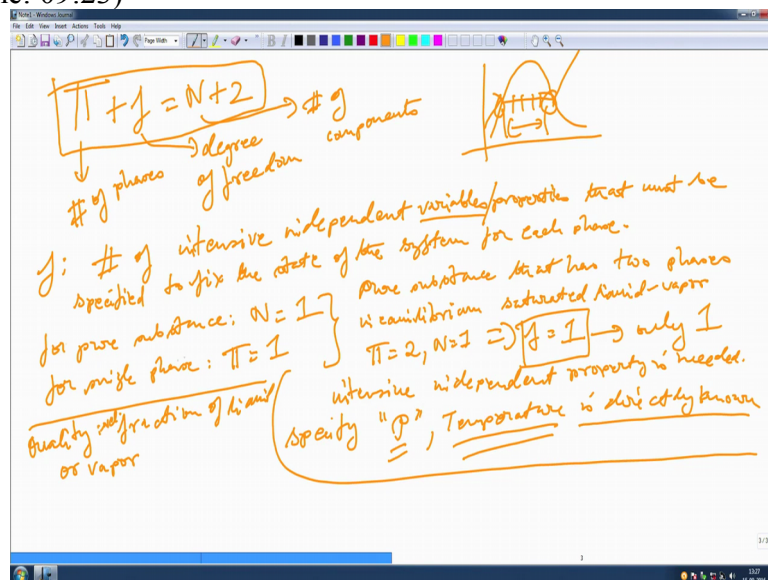 ne: 09:23)
Note1 - Windows Journal
File Edit View Insert Actions Tools Help
Page Width
B I
Π + f = N + 2
→ # of components
→ degree of freedom
# of phases
f: # of intensive independent variables/properties that must be
specified to fix the state of the system for each phase.
for pure substance: N = 1
for single phase: Π = 1
pure substance that has two phases
in equilibrium saturated liquid-vapor
Π = 2, N = 1 ⇒ f = 1 → only 1
intensive independent property is needed.
specify "P", Temperature is directly known
Quality: fraction of liquid
or vapor
3/3
3
13:27